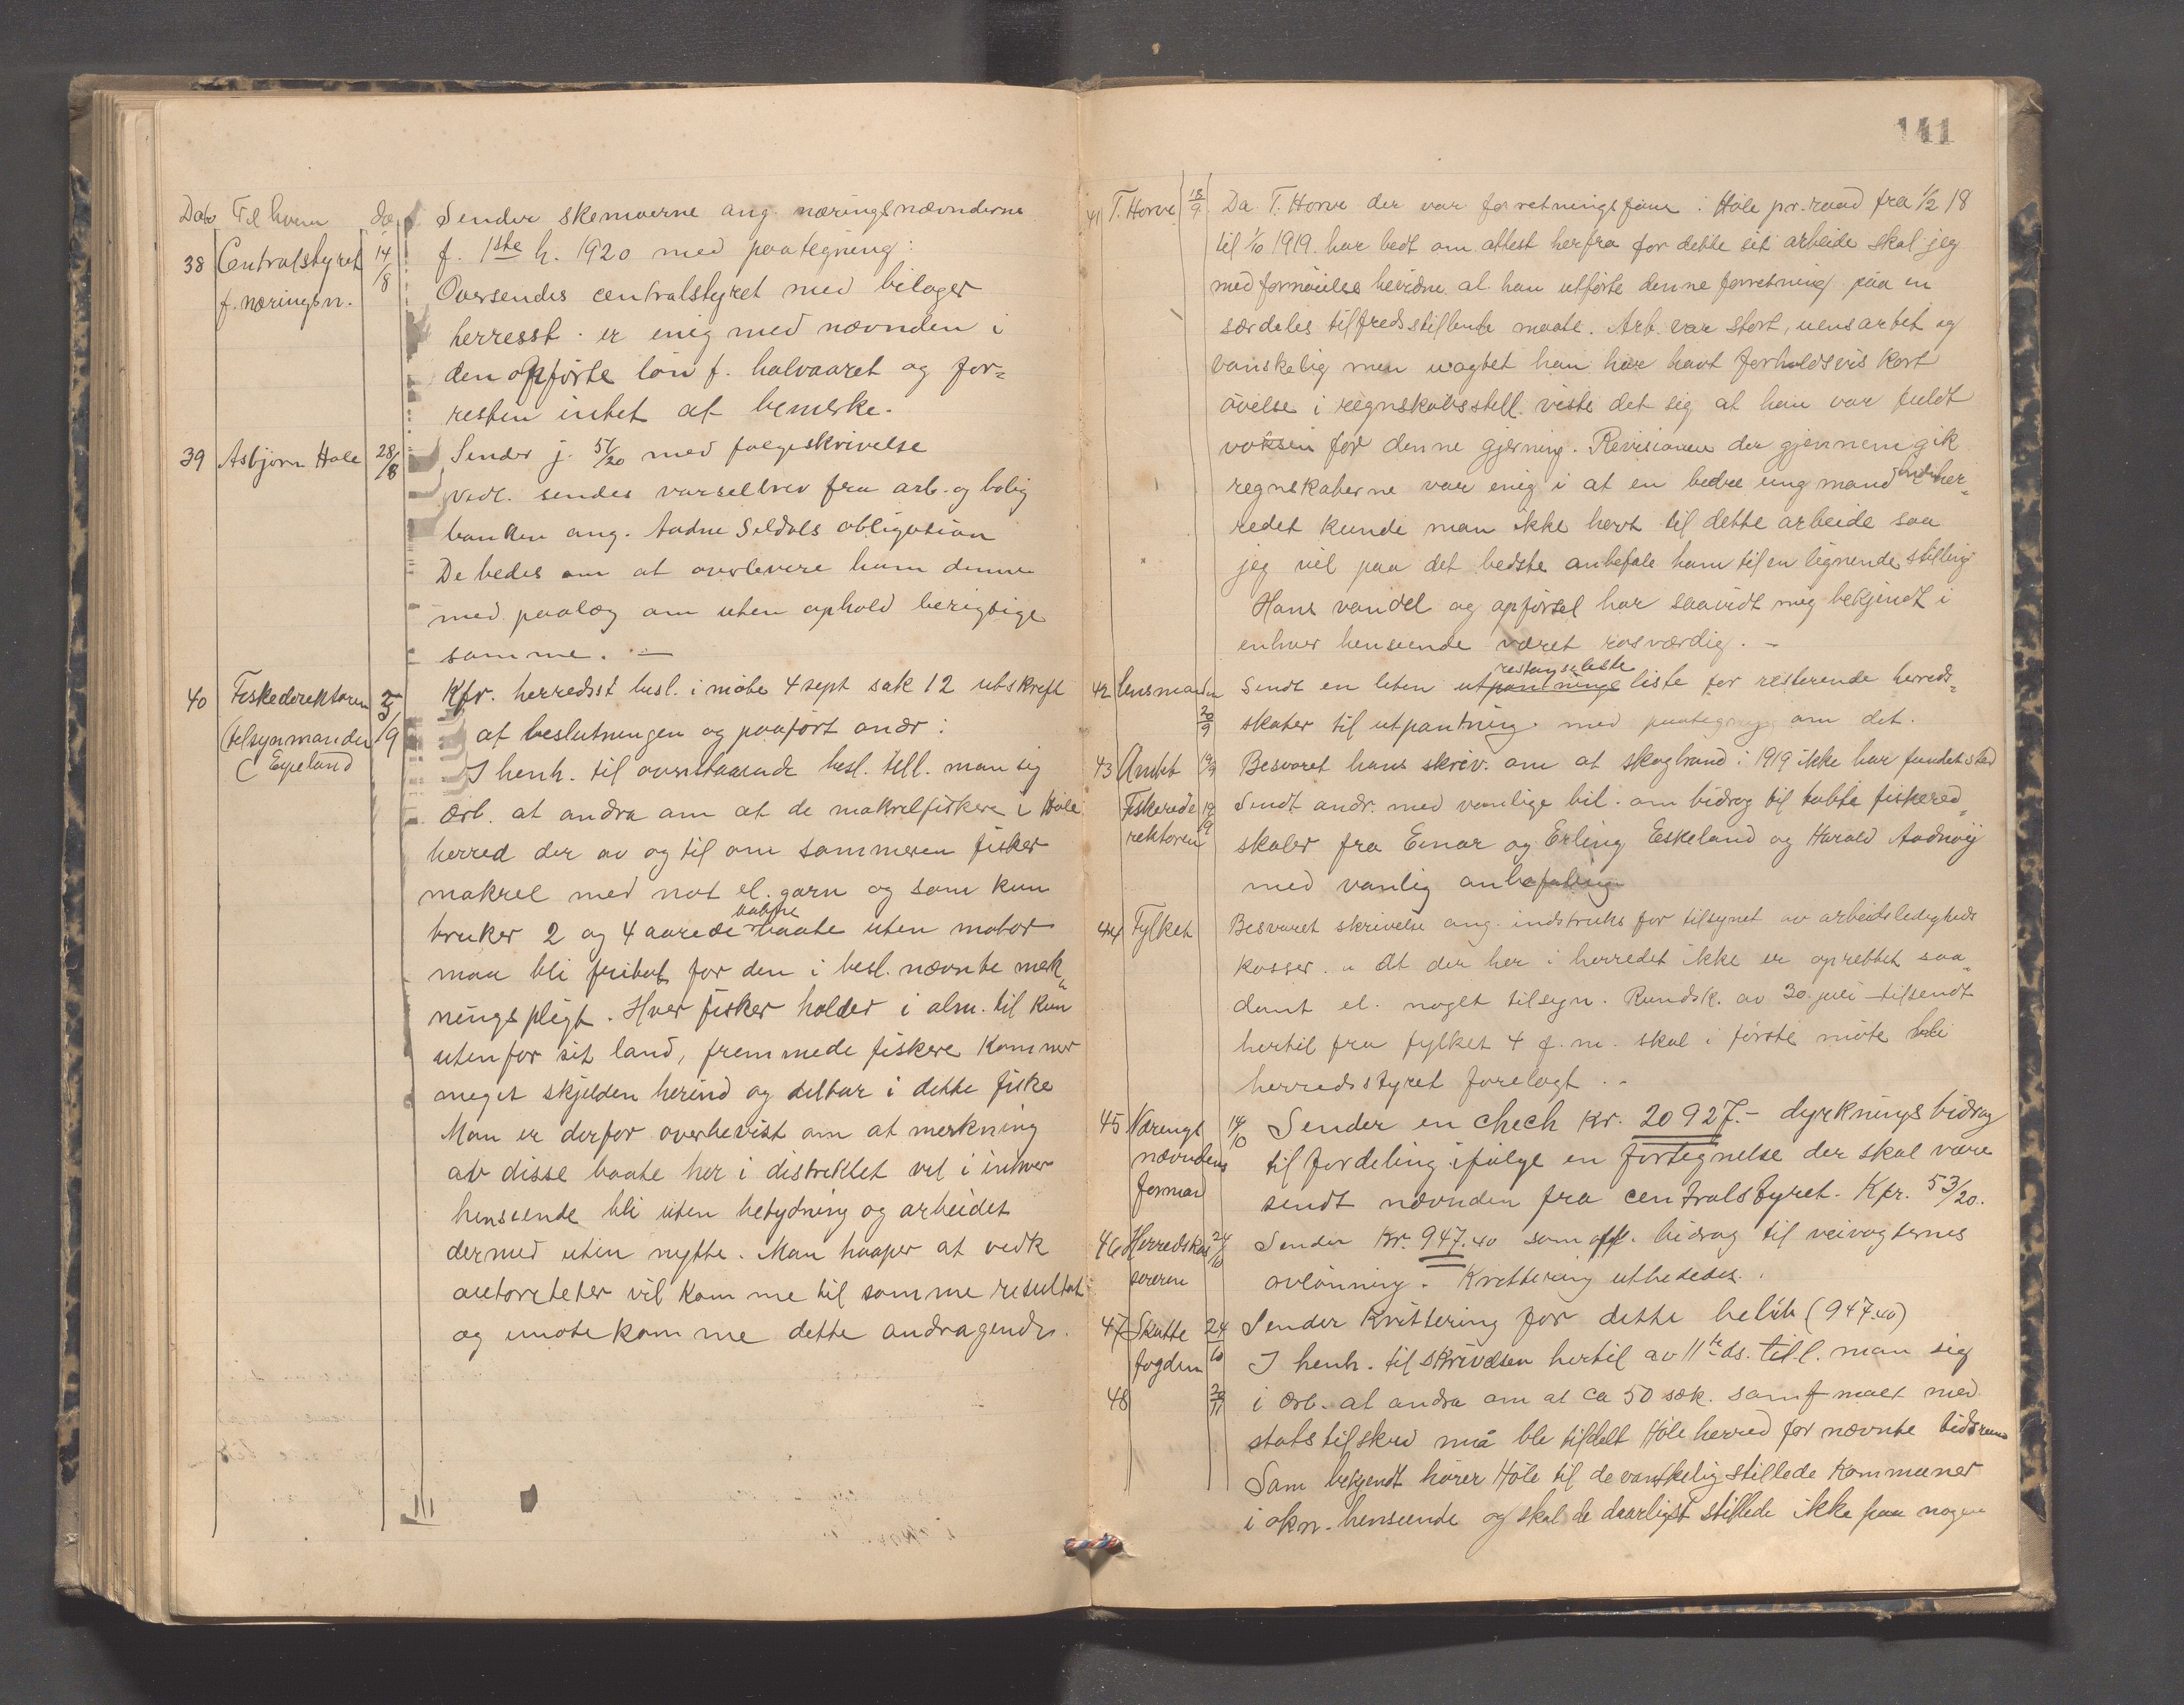 Dato Til hvem da
38 Centralstyret f. næringsn. 14/8
Sender skemaerne ang. næringsnævnderne
f. 1ste h. 1920 med paategning:
Oversendes centralstyret med bilager
herresst. er enig med nævnden i
den opførte løn f. halvaaret og for=
resten intet at bemerke.
39 Asbjørn Hole 28/8
Sender j. 51/20 med følgeskrivelse
Vedl. sendes varselbrev fra arb. og bolig
banken ang. Aadne Seldals obligation
De bedes om at overlevere ham denne
med paalæg om uten ophold berigtige
samme. —
40 Fiskedirektøren 5/9
(telsynmanden Espeland
Kfr. herredsst besl. i møte 4 sept sak 12 utskreft
af beslutningen og paaført andr:
I henh. til ovenstaaende besl. till. man sig
ærb. at andra om at de makrelfiskere i Høle
herred der av og til om sommeren fisker
makrel med not el. garn og som kun
bruker 2 og 4 aarede baate uten motor
maa bli fritat for den i besl. nævnte merk=
ningspligt. Hver fisker holder i alm. til kun
utenfor sit land, fremmede fiskere kommer
meget skjelden herind og deltar i dette fiske
Man er derfor overbevist om at merkning
av disse baate her i distriktet vil i enhver
henseende bli uten betydning og arbeidet
dermed uten nytte. Man haaper at vedk
autoriteter vil komme til samme resultat
og imøtekomme dette andragende.
141
41 T. Horve 18/9
Da T. Horve der var forretningsfører i Høle pr.raad fra 1/2 18
til 1/10 1919. har bedt om attest herfra for dette sit arbeide skal jeg
med fornøielse bevidne at han utførte denne forretning paa en
særdeles tilfredsstillende maate. Arb. var stort, uensartet og
vanskelig men uagtet han har havt forholdsvis kort
øvelse i regnskabsstell. viste det sig at han var fuldt
voksen for denne gjerning. Revisionen der gjennemgik
regnskaberne var enig i at en bedre ung mand indenher=
redet kunde man ikke havt til dette arbeide saa
jeg vil paa det bedste anbefale ham til en lignende stilling
Hans vandel og opførsel har saavidt mig bekjendt i
enhver henseende været rosværdig. —
42 Lensmanden 20/9
restanseliste
Sendt en liten utpantnings liste for resterende herreds=
skater til utpantning med paategning om det.
43 Amtet 19/9
Besvaret hans skriv. om at skogbrand i 1919 ikke har fundet sted
Fiskeridirektøren 19/9
Sendt andr. med vanlige bil. om bidrag til tabte fiskered=
skaber fra Einar og Erling Eskeland og Harald Aadnøy
med vanlig anbefaling
44 Fylket
Besvaret skrivelse ang. instruks for tilsynet av arbeidsledigheds
kasser. „ At der her i herredet ikke er oprettet saa=
dant el. noget tilsyn. Rundsk. av 30. juli tilsendt
hertil fra fylket 4 f. m. skal i første møte bli
herredsstyret forelagt. -
45 Næringsnævndens formand 14/10
Sender en chech kr. 20927.- dyrkningsbidrag
til fordeling ifølge en fortegnelse der skal være
sendt nævnden fra centralstyret. Kfr. 53/20.
46 Herredskassereren 24/10
Sender kr. 947.40 som off. bidrag til veivogternes
avlønning. Kvittering utbededes.
47 Skattefogden 24/10
Sender kvittering for dette beløb (947.40)
48 20/11
I henh. til skrivelsen hertil av 11te ds. till. man sig
i ærb. at andra om at ca 50 sæk. samf mael med
statstilskud må bli tildelt Høle herred for nævnte tidsrum
Som bekjendt hører Høle til de vanskelig stillede kommuner
i økn. henseende og skal de daarligst stillede ikke faa nogen